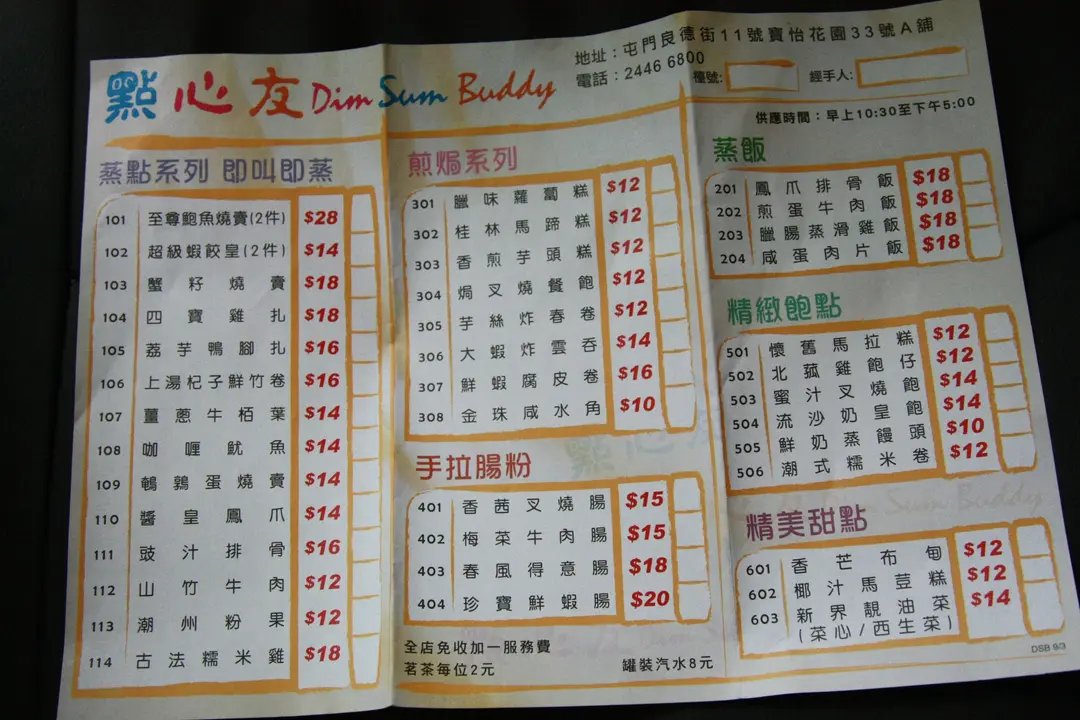 點心友 Dim Sum Buddy
地址：屯門良德街11號寶怡花園33號A舖
電話：2446 6800
檯號:
經手人:
供應時間：早上10:30至下午5:00
蒸點系列 即叫即蒸
101 至尊鮑魚燒賣(2件) $28
102 超級蝦餃皇(2件) $14
103 蟹籽燒賣 $18
104 四寶雞扎 $18
105 荔芋鴨腳扎 $16
106 上湯杞子鮮竹卷 $16
107 薑蔥牛栢葉 $14
108 咖喱魷魚 $14
109 鵪鶉蛋燒賣 $14
110 醬皇鳳爪 $14
111 豉汁排骨 $16
112 山竹牛肉 $12
113 潮州粉果 $12
114 古法糯米雞 $18
煎焗系列
301 臘味蘿蔔糕 $12
302 桂林馬蹄糕 $12
303 香煎芋頭糕 $12
304 焗叉燒餐飽 $12
305 芋絲炸春卷 $12
306 大蝦炸雲吞 $14
307 鮮蝦腐皮卷 $16
308 金珠咸水角 $10
手拉腸粉
401 香茜叉燒腸 $15
402 梅菜牛肉腸 $15
403 春風得意腸 $18
404 珍寶鮮蝦腸 $20
全店免收加一服務費
茗茶每位2元
罐裝汽水8元
蒸飯
201 鳳爪排骨飯 $18
202 煎蛋牛肉飯 $18
203 臘腸蒸滑雞飯 $18
204 咸蛋肉片飯 $18
精緻飽點
501 懷舊馬拉糕 $12
502 北菰雞飽仔 $12
503 蜜汁叉燒飽 $14
504 流沙奶皇飽 $14
505 鮮奶蒸饅頭 $10
506 潮式糯米卷 $12
精美甜點
601 香芒布甸 $12
602 椰汁馬荳糕 $12
603 新界靚油菜 $14
(菜心/西生菜)
DSB 9/3